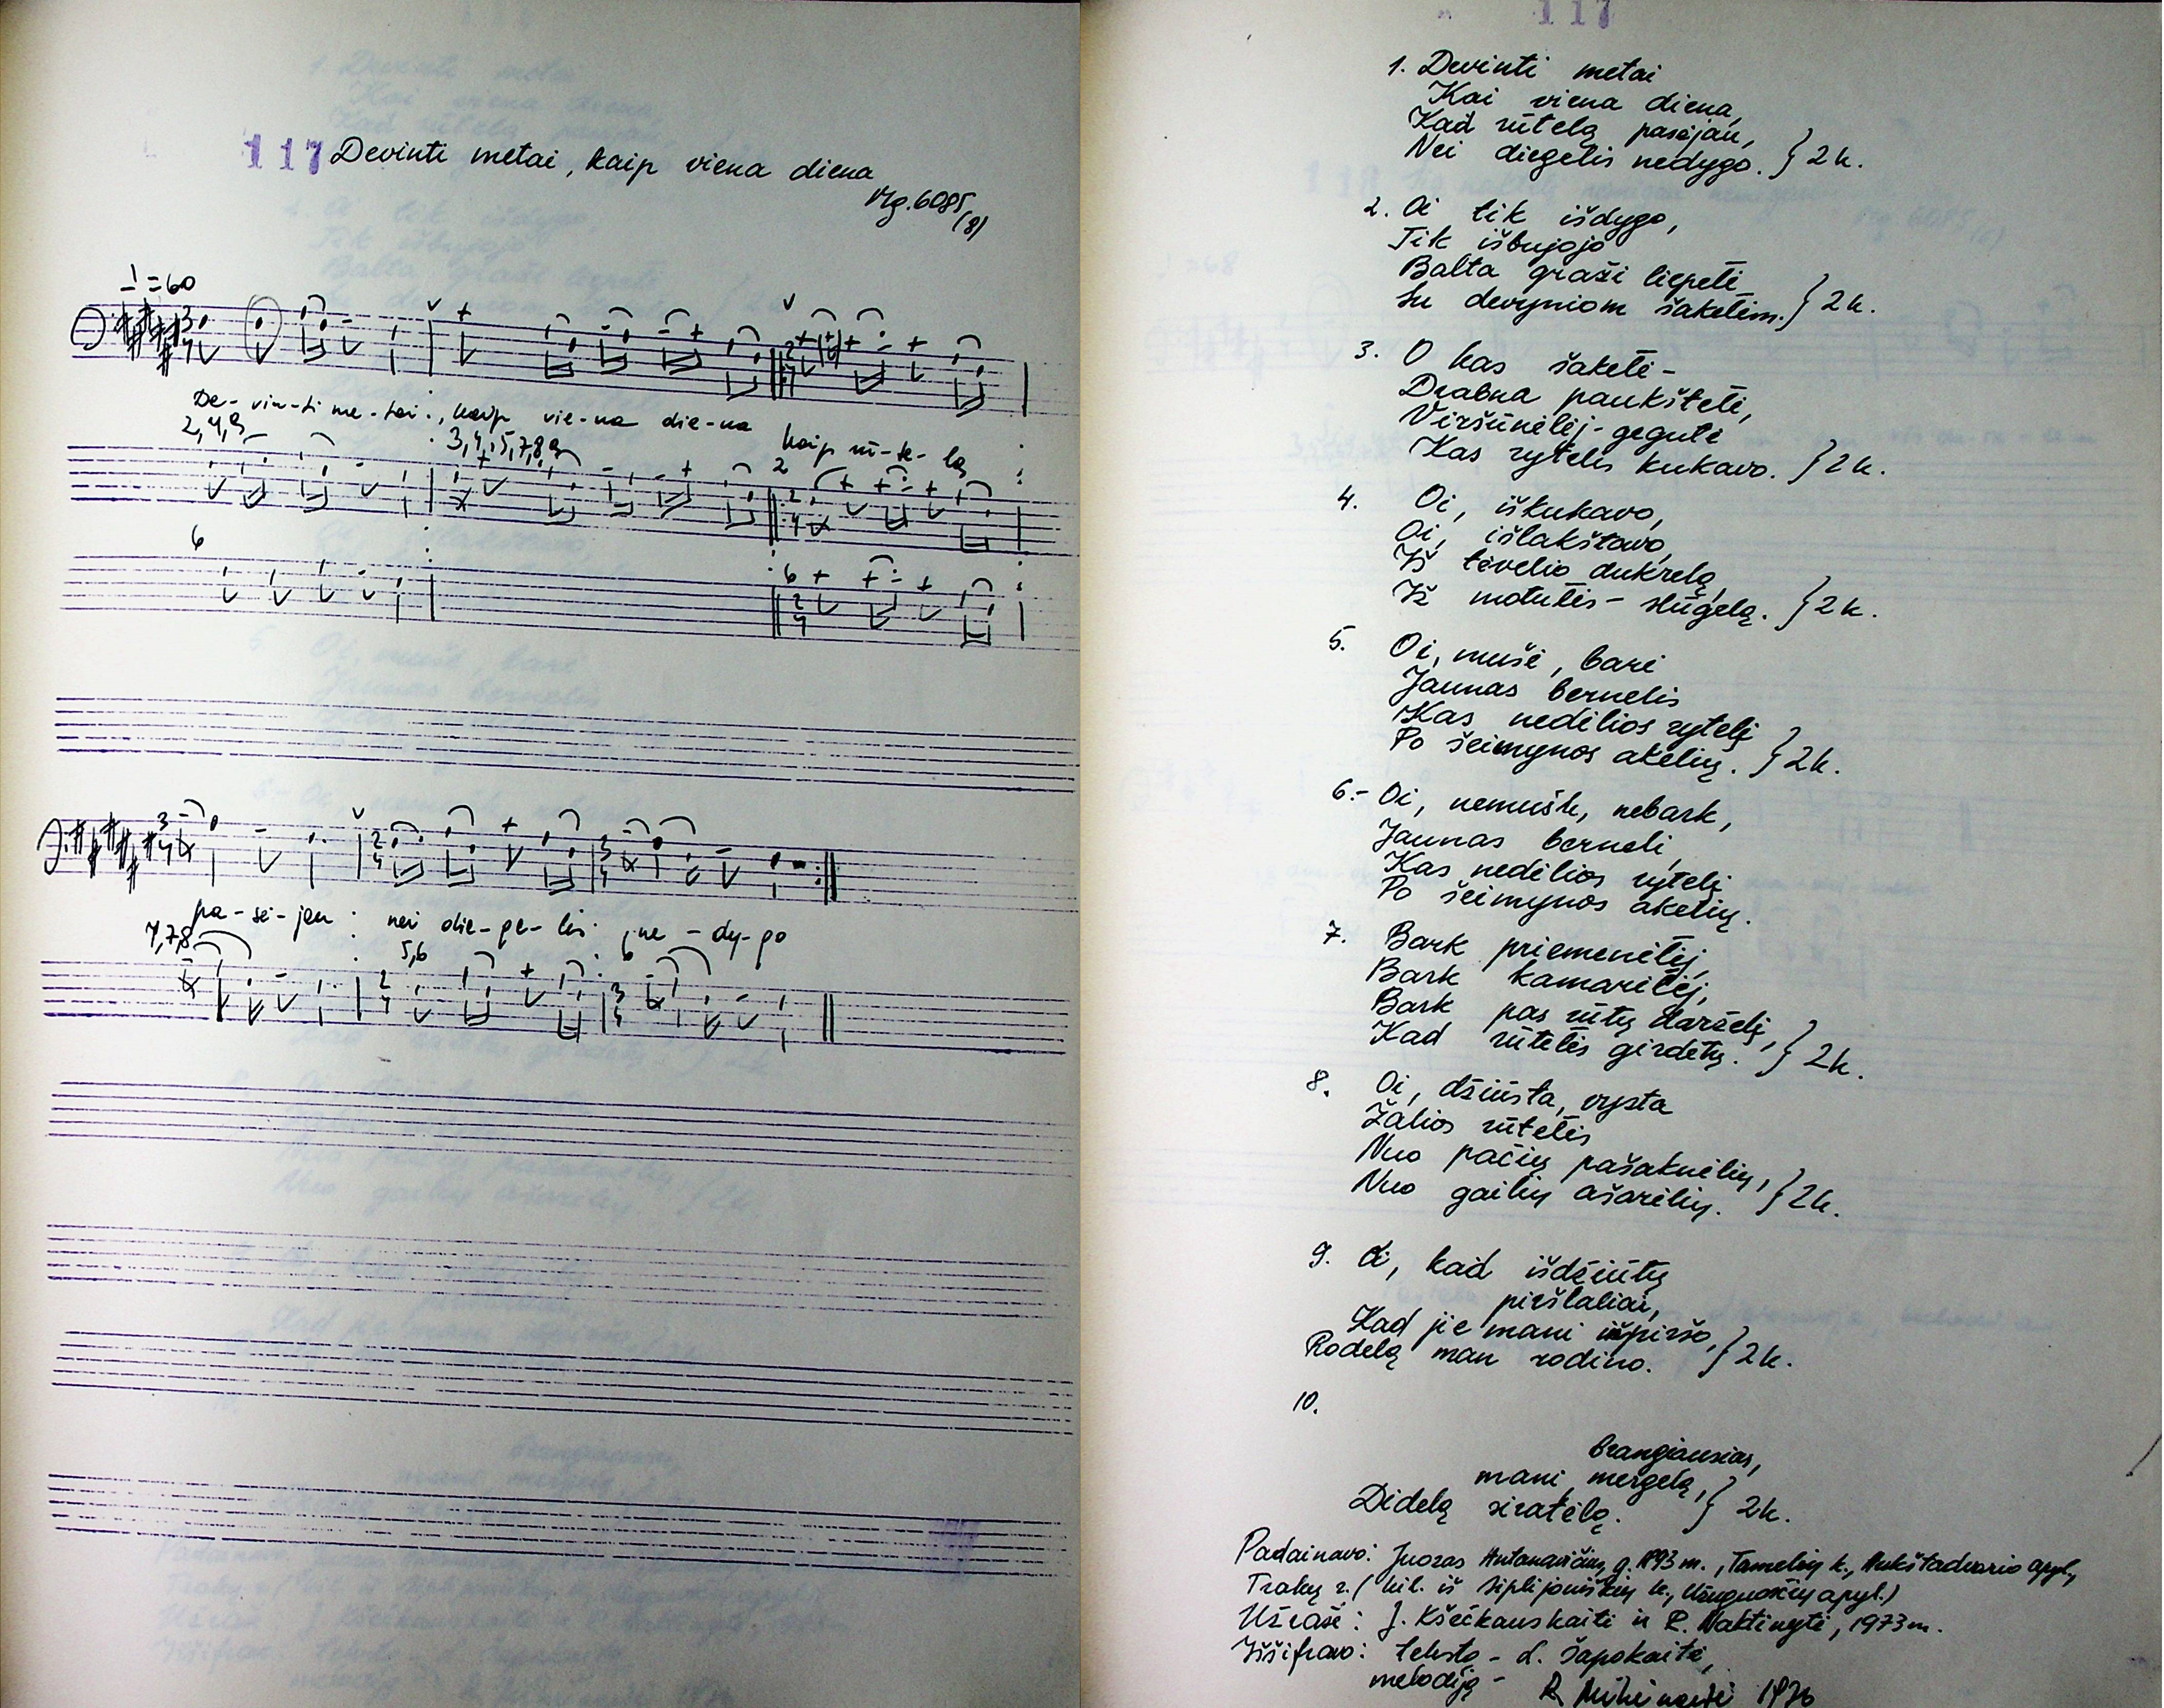 117 Devinti metai, kaip viena diena
Mg. 6085
(8)
♩=60
De-vin-ti me-tai, kaip vie-na die-na
kaip rū-te-lą
2,4,9
3,4,5,7,8,9
2
6
6
pa-sė-jau nei die-ge-lis ne-dy-go
4,7,8
5,6
6
117
1. Devinti metai
Kai viena diena,
Kad rūtelą pasėjau,
Nei diegelis nedygo. } 2k.
2. Oi tik išdygo,
Tik išbujojo
Balta graži liepelė
Su devyniom šakelėm. } 2k.
3. O kas šakelė-
Drabna paukštelė,
Viršūnėlėj-gegutė
Kas rytelis kukavo. } 2k.
4. Oi, iškukavo,
Oi, išlakštavo,
Iš tėvelio dukrelą,
Iš motutės- slūgelą. } 2k.
5. Oi, mušė, barė
Jaunas bernelis
Kas nedėlios rytelį
Po šeimynos akelių. } 2k.
6.- Oi, nemušk, nebark,
Jaunas berneli,
Kas nedėlios rytelį
Po šeimynos akelių.
7. Bark priemenėlėj,
Bark kamarėlėj,
Bark pas rūtų darželį,
Kad rūtelės girdėtų. } 2k.
8. Oi, džiūsta, vysta
Žalios rūtelės
Nuo pačių pašaknėlių,
Nuo gailių ašarėlių. } 2k.
9. Oi, kad išdžiūtų
piršlaliai,
Kad jie mani išpiršo,
Rodelą man rodino. } 2k.
10.
brangiausias,
mani mergelą,
Didelą siratėlą. } 2k.
Padainavo: Juozas Antanavičius, g. 1893 m., Tamelių k., Aukštadvario apyl.,
Trakų r. (kil. iš Siplijoniškių k., Užuguosčių apyl.)
Užrašė: J. Kšččkauskaitė ir R. Naktinytė, 1973 m.
Iššifravo: tekstą - L. Šapokaitė,
melodiją - R. 1976